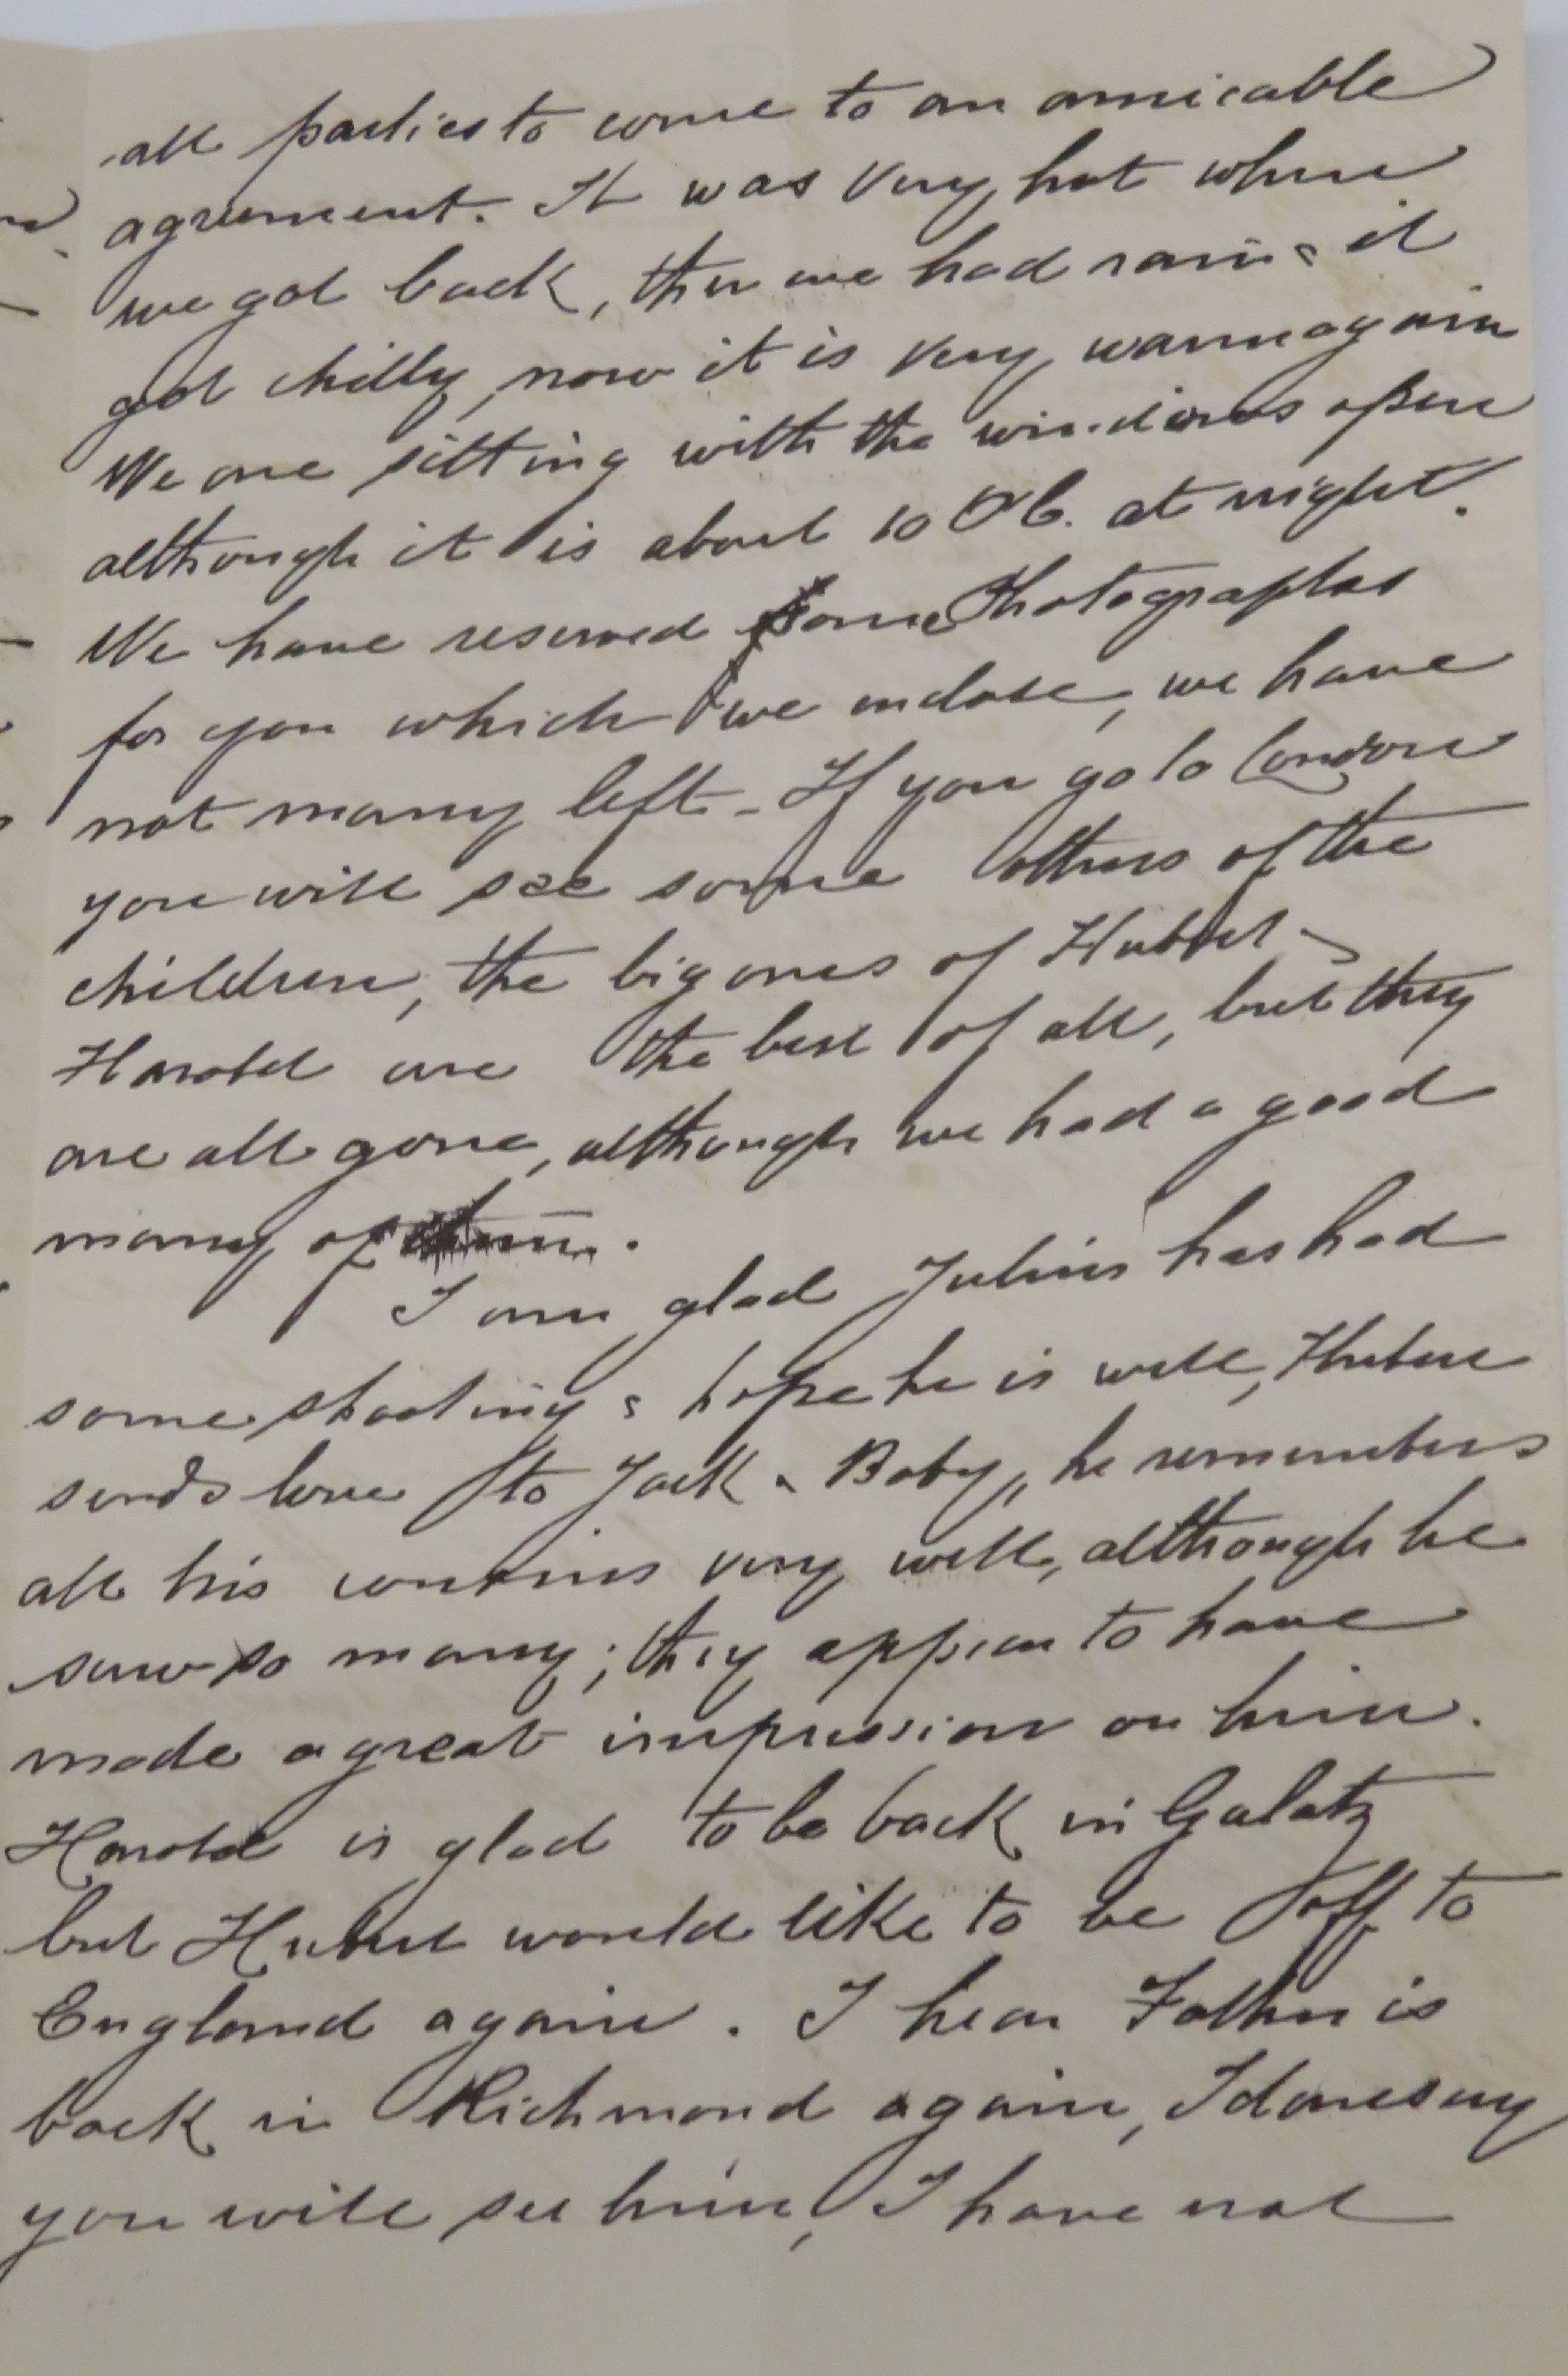 all parties to come to an amicable
agreement. It was very hot when
we got back, then we had rain & it
got chilly, now it is very warm again
We are sitting with the windows open
although it is about 10 O'C. at night.
We have reserved some Photographs
for you which we enclose, we have
not many left - If you go to London
you will see some others of the
children, the big ones of Hubert &
Harold are the best of all, but they
are all gone, although we had a good
many of them.
I am glad Julius has had
some shooting & hope he is well, Hubert
sends love to Jack & Baby, he remembers
all his cousins very well, although he
saw so many; they appear to have
made a great impression on him.
Harold is glad to be back in Galatz
but Hubert would like to be off to
England again. I hear Father is
back in Richmond again, I daresay
you will see him, I have not